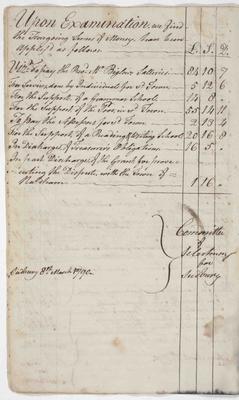 Upon Examination, we find
the Foregoing Sums of Money have been
Applyd as follows £. S. D.
Viz.t To pay the Revd. Mr. Biglow Salleries 84 10 7
For Services done by Individuals for sd. Town 5 12 6
For the Support of a Grammar School 14 8
For the Support of the Poor in sd. Town 55 14 11
To pay the Assessors for sd. Town 2 13
For the Support of a Reading & Writing School 20 16 8
In Discharge of Treasurers Obligations 16 5
In part Discharge of the Grant for prose-
cuting the Dispute, with the Town of
Natham 1 16
Committee
of
Selectmen
for
Sudbury
Sudbury 8th March 1790